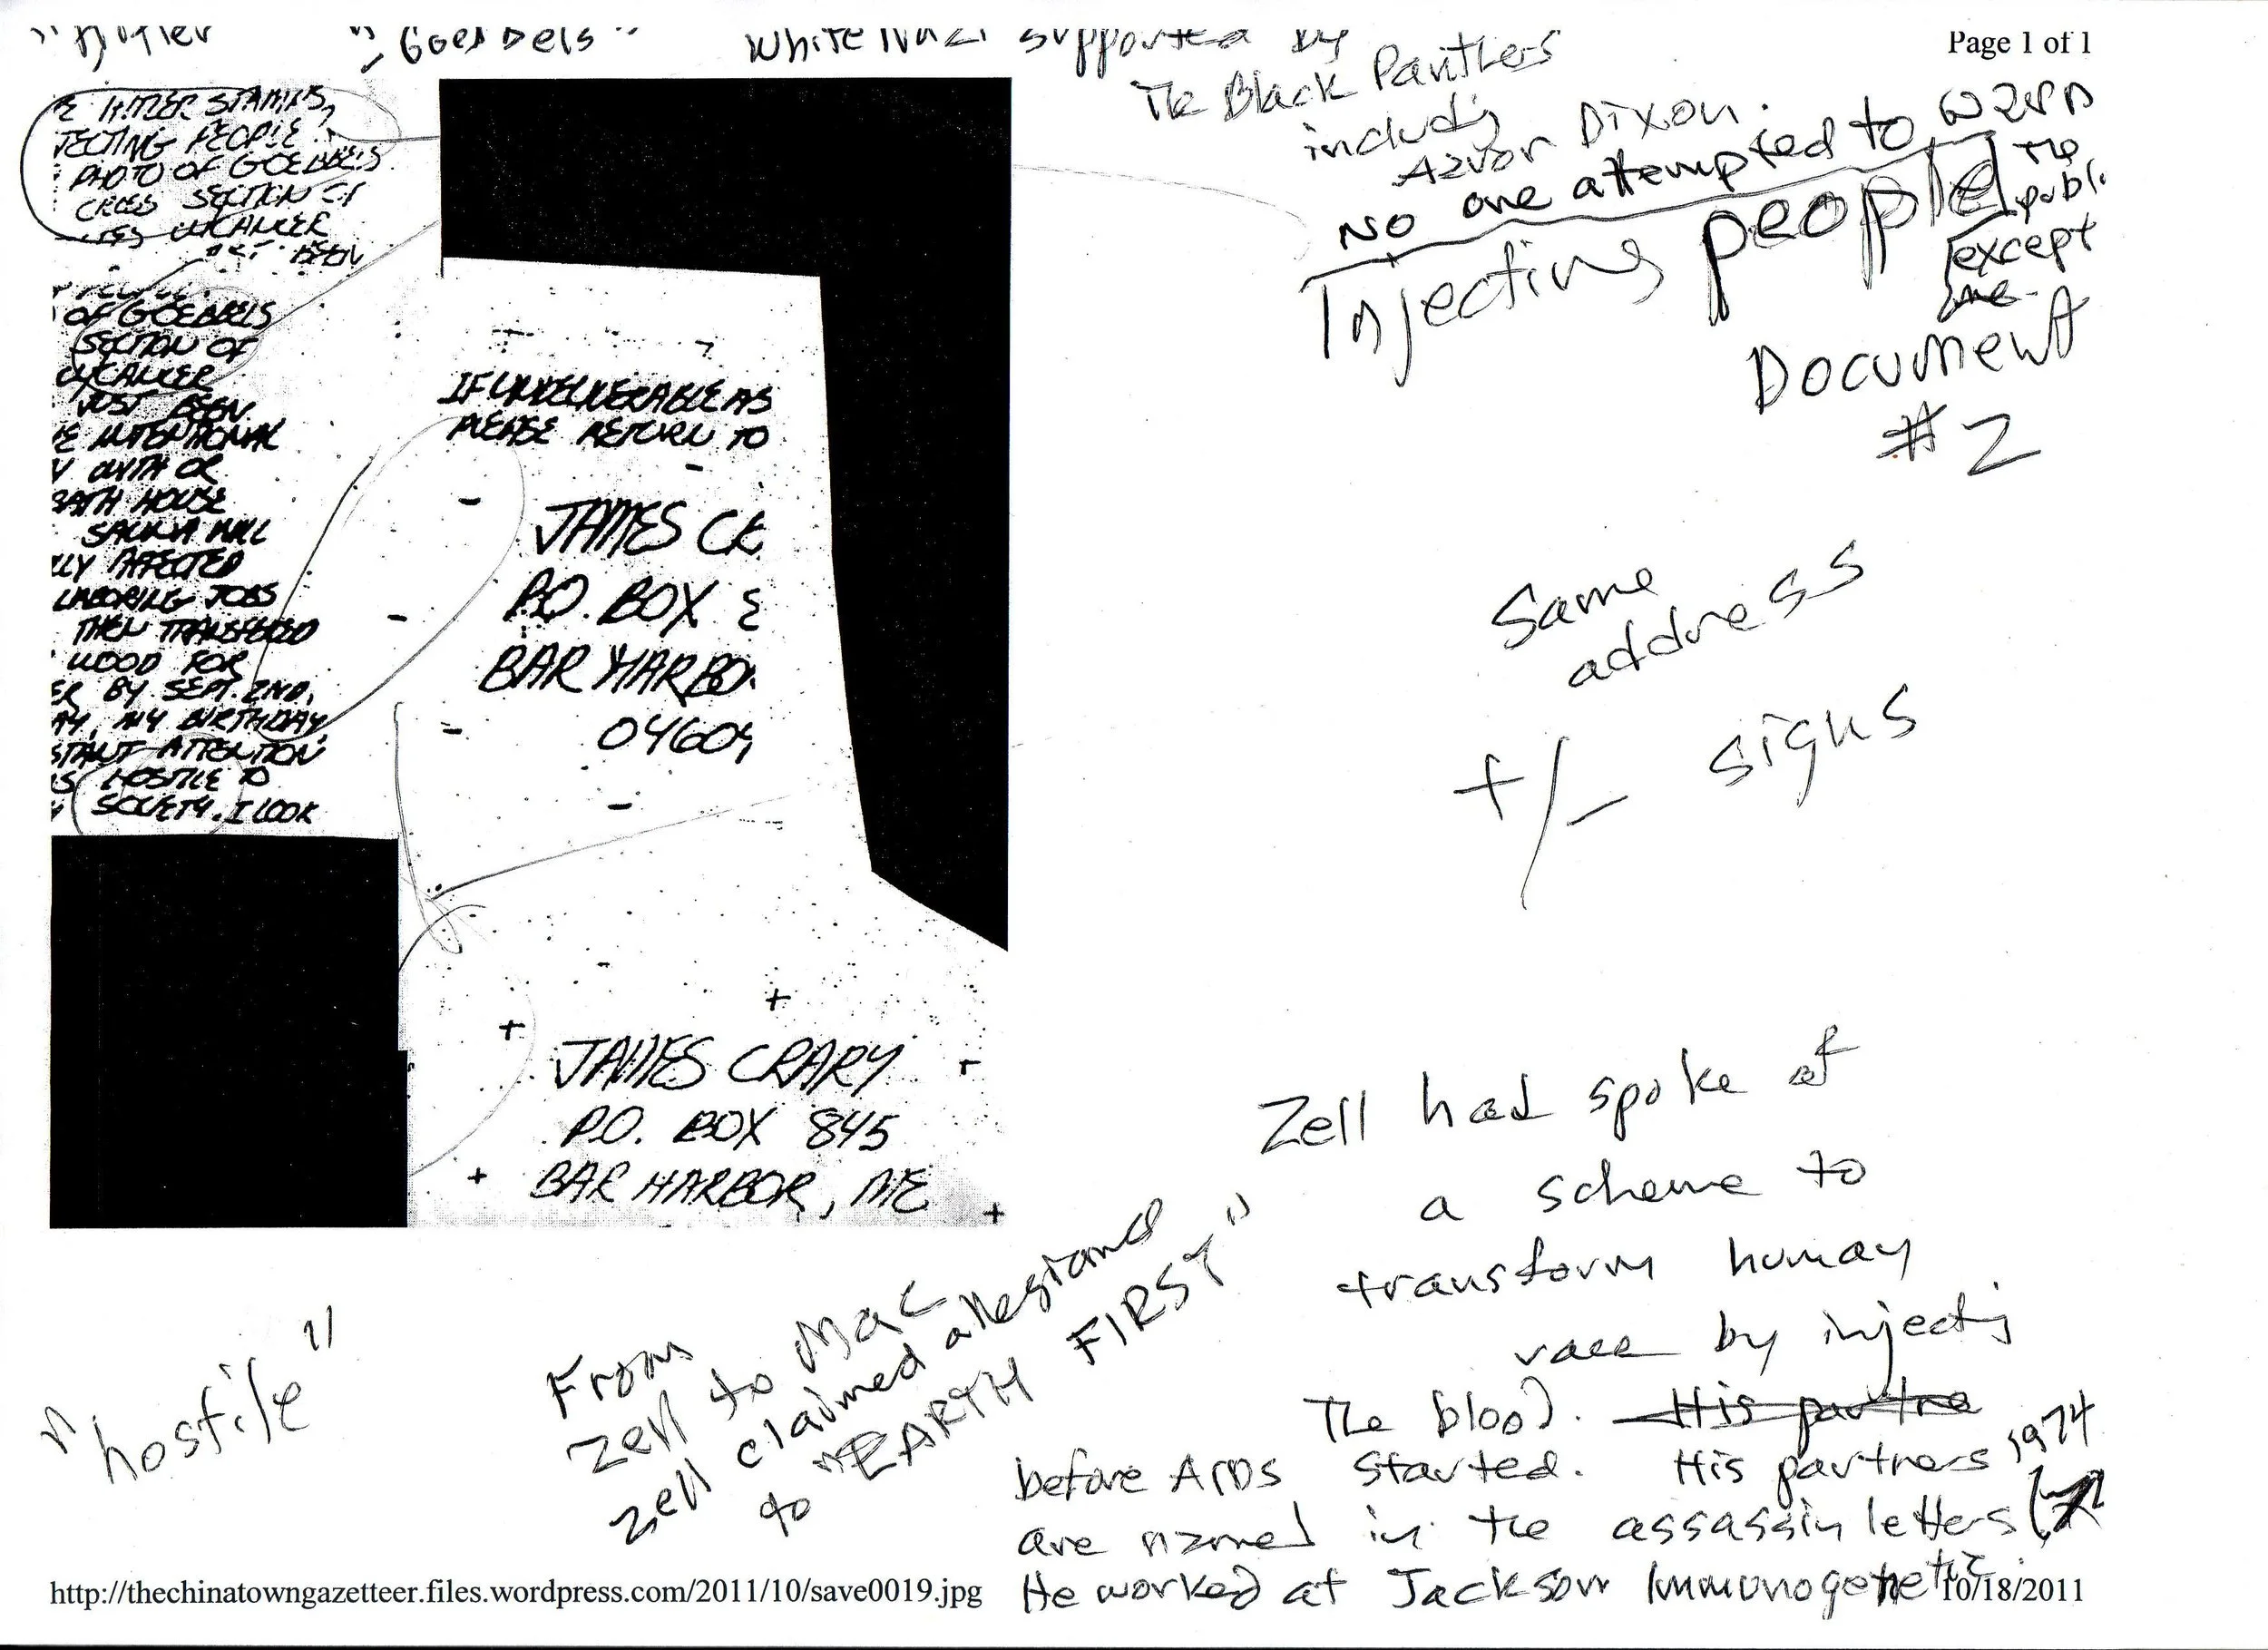 "Hitler "Goebbels" White Nazi supported by
Page 1 of 1
The Black Panthers
including
Dixon.
No one attempted to warn
The
public
except
me.
Injecting people
Document
#2
HITLER STAMPS,
JECTING PEOPLE?
PHOTO OF GOEBBELS
CROSS SECTION OF
BEEN
OF GOEBBELS
SECTION OF
JUST BEEN
E INTENTIONAL
WITH OR
BATH HOUSE
SAUNA WILL
LLY AFFECTED
LABORING JOBS
THEN TRANSFERED
WOOD FOR
ER BY SEPT. 2ND,
AY, MY BIRTHDAY,
STANT ATTENTION
IS HOSTILE TO
SOCIETY. I LOOK
IF UNDELIVERABLE AS
PLEASE RETURN TO
JAMES CR
P.O. BOX 8
BAR HARBO
04609
same
address
+/- signs
JAMES CRARY
P.O. BOX 845
BAR HARBOR, ME
Zell had spoke of
a scheme to
transform human
race by injecting
The blood. His partne
before AIDS started. His partners 1974
are named in the assassin letters
He worked at Jackson Immunogenetic
"hostile"
From
Zell to Mac
Zell claimed allegiance
to "EARTH FIRST"
http://thechinatowngazetteer.files.wordpress.com/2011/10/save0019.jpg
10/18/2011